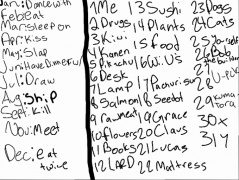 Jan: Dance with
Feb: Eat
Mar: sleep on
Apr: Kiss
May: Slap
Jun: Have Dinner w/
Jul: Draw
Aug: Ship
Sept: Kill
Nov: Meet
Dec: eat
twice
1 Me
2 Drugs
3 Kiwi
4 Kanen
5 Pikachu
6 Desk
7 Lamp
8 Salmon
9 raw meat
10 flowers
11 Books
12 LARD
13 Sushi
14 Plants
15 food
16 Wii U's
17 Pachurisu
18 Seedot
19 Grace
20 Claus
21 Lucas
22 Mattress
23 Dogs
24 Cats
25 Yourself
26 Bob
the builder
28 U-Pick
29 Kuma
tora
30 X
31 Y